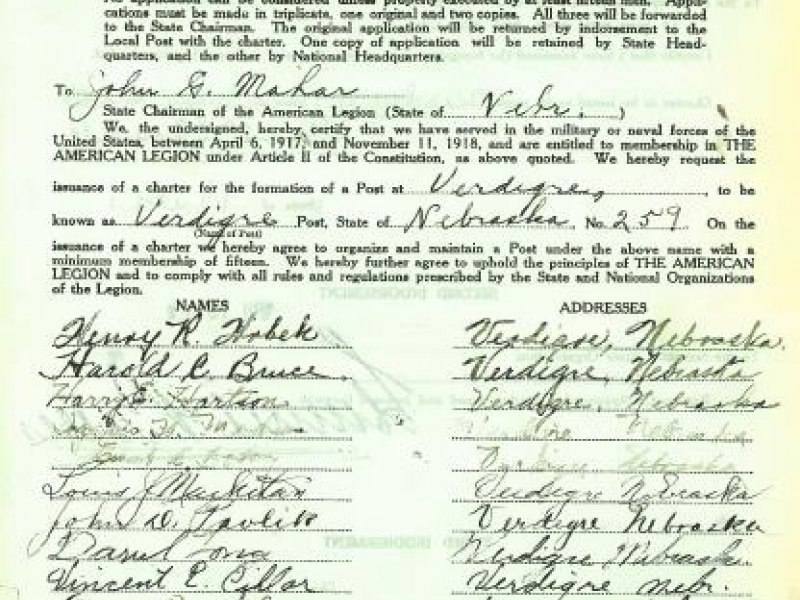 No application can be considered unless properly executed by at least fifteen men. Appli-
cations must be made in triplicate, one original and two copies. All three will be forwarded
to the State Chairman. The original application will be returned by indorsement to the
Local Post with the charter. One copy of application will be retained by State Head-
quarters, and the other by National Headquarters.
To John G. Mahar
State Chairman of the American Legion (State of Nebr. )
We, the undersigned, hereby certify that we have served in the military or naval forces of the
United States, between April 6, 1917, and November 11, 1918, and are entitled to membership in THE
AMERICAN LEGION under Article II of the Constitution, as above quoted. We hereby request the
issuance of a charter for the formation of a Post at Verdigre, , to be
known as Verdigre Post, State of Nebraska, No. 259 On the
(Name of Post)
issuance of a charter we hereby agree to organize and maintain a Post under the above name with a
minimum membership of fifteen. We hereby further agree to uphold the principles of THE AMERICAN
LEGION and to comply with all rules and regulations prescribed by the State and National Organizations
of the Legion.
NAMES ADDRESSES
Henry R. Hobek Verdigre, Nebraska.
Harold C. Bruce Verdigre, Nebraska
Harry E. Hartson Verdigre, Nebraska
Nebraska
Nebraska
Louis J. Verdigre Nebraska
John D. Pavlik Verdigre Nebraska
Verdigre Nebraska.
Vincent E. Cillar Verdigre Nebr.